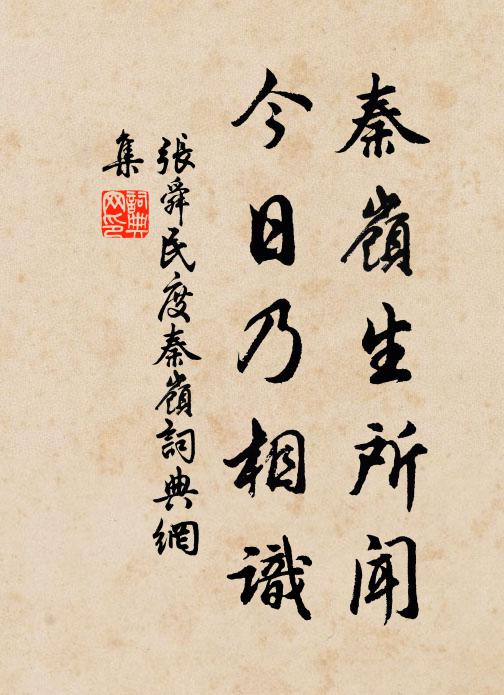 秦嶺生所聞
今日乃相識
張舜民度秦嶺詞典網
集
詞典
网印